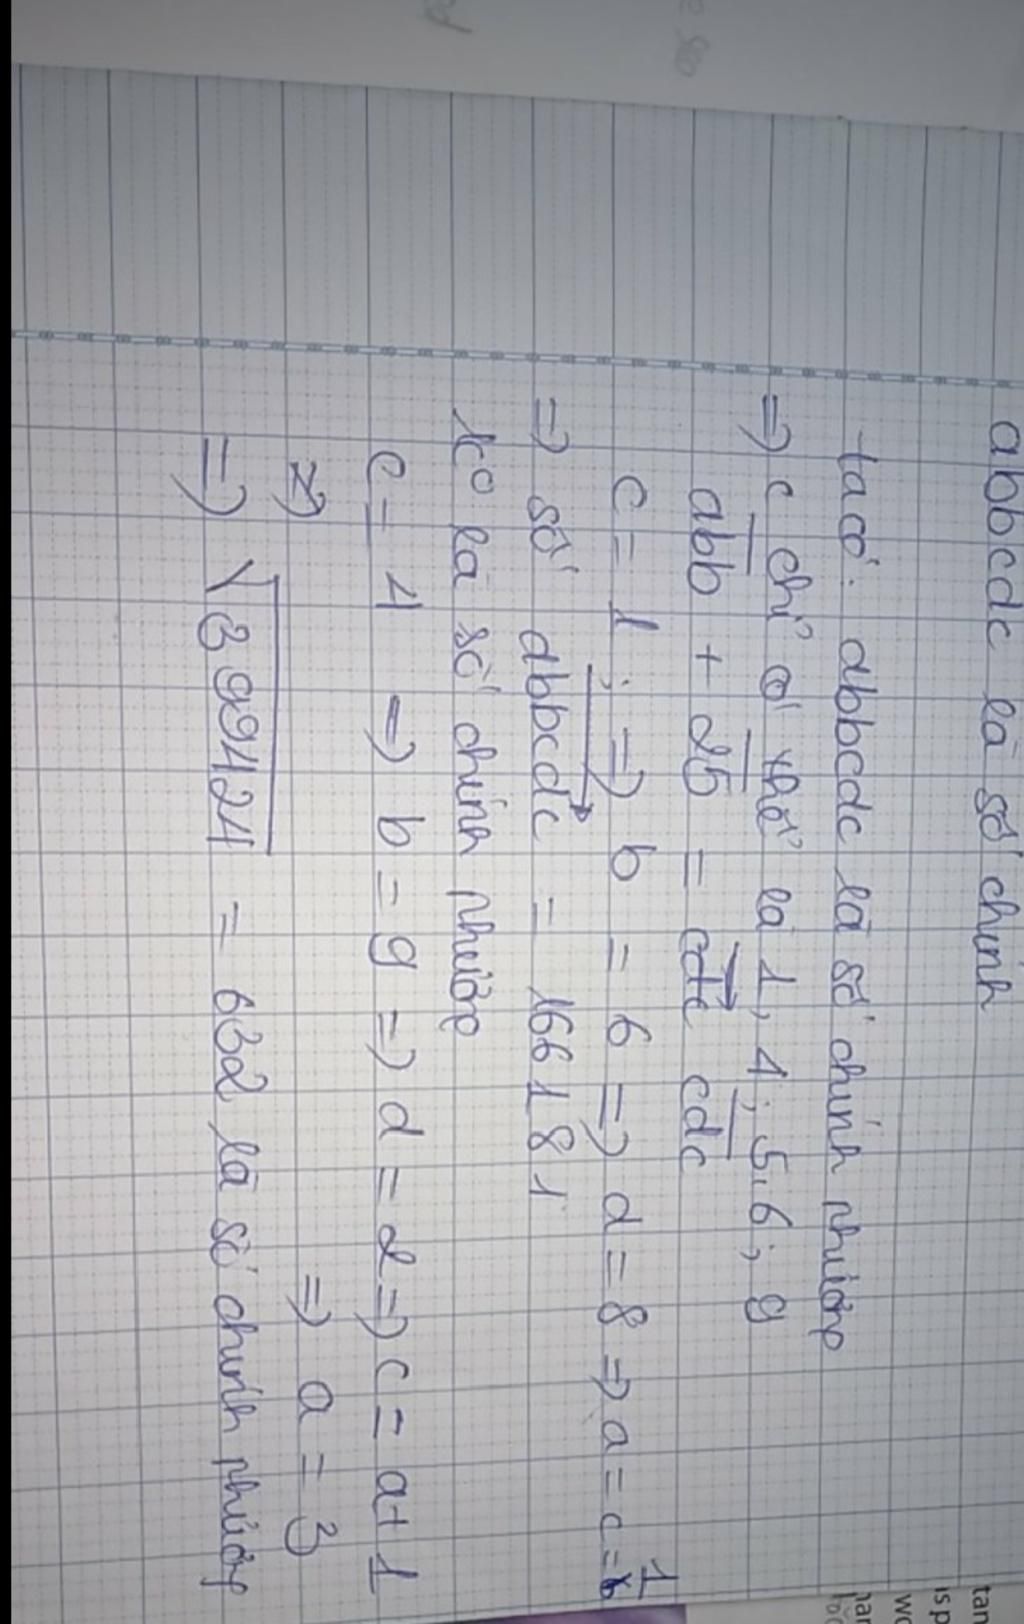 abbcdc là số chính
ta có: abbcdc là số chính phương
=> c chỉ có thể là 1, 4, 5, 6, 9
abb + 25 = cdc cdc
c = 1 ; => b = 6 => d = 8 => a = c = 1
=> số abbcdc = 166181
ko là số chính phương
c = 4 => b = 9 => d = 2 => c = a + 1
=> => a = 3
=> √399424 = 632 là số chính phương
tan
is p
wo
har